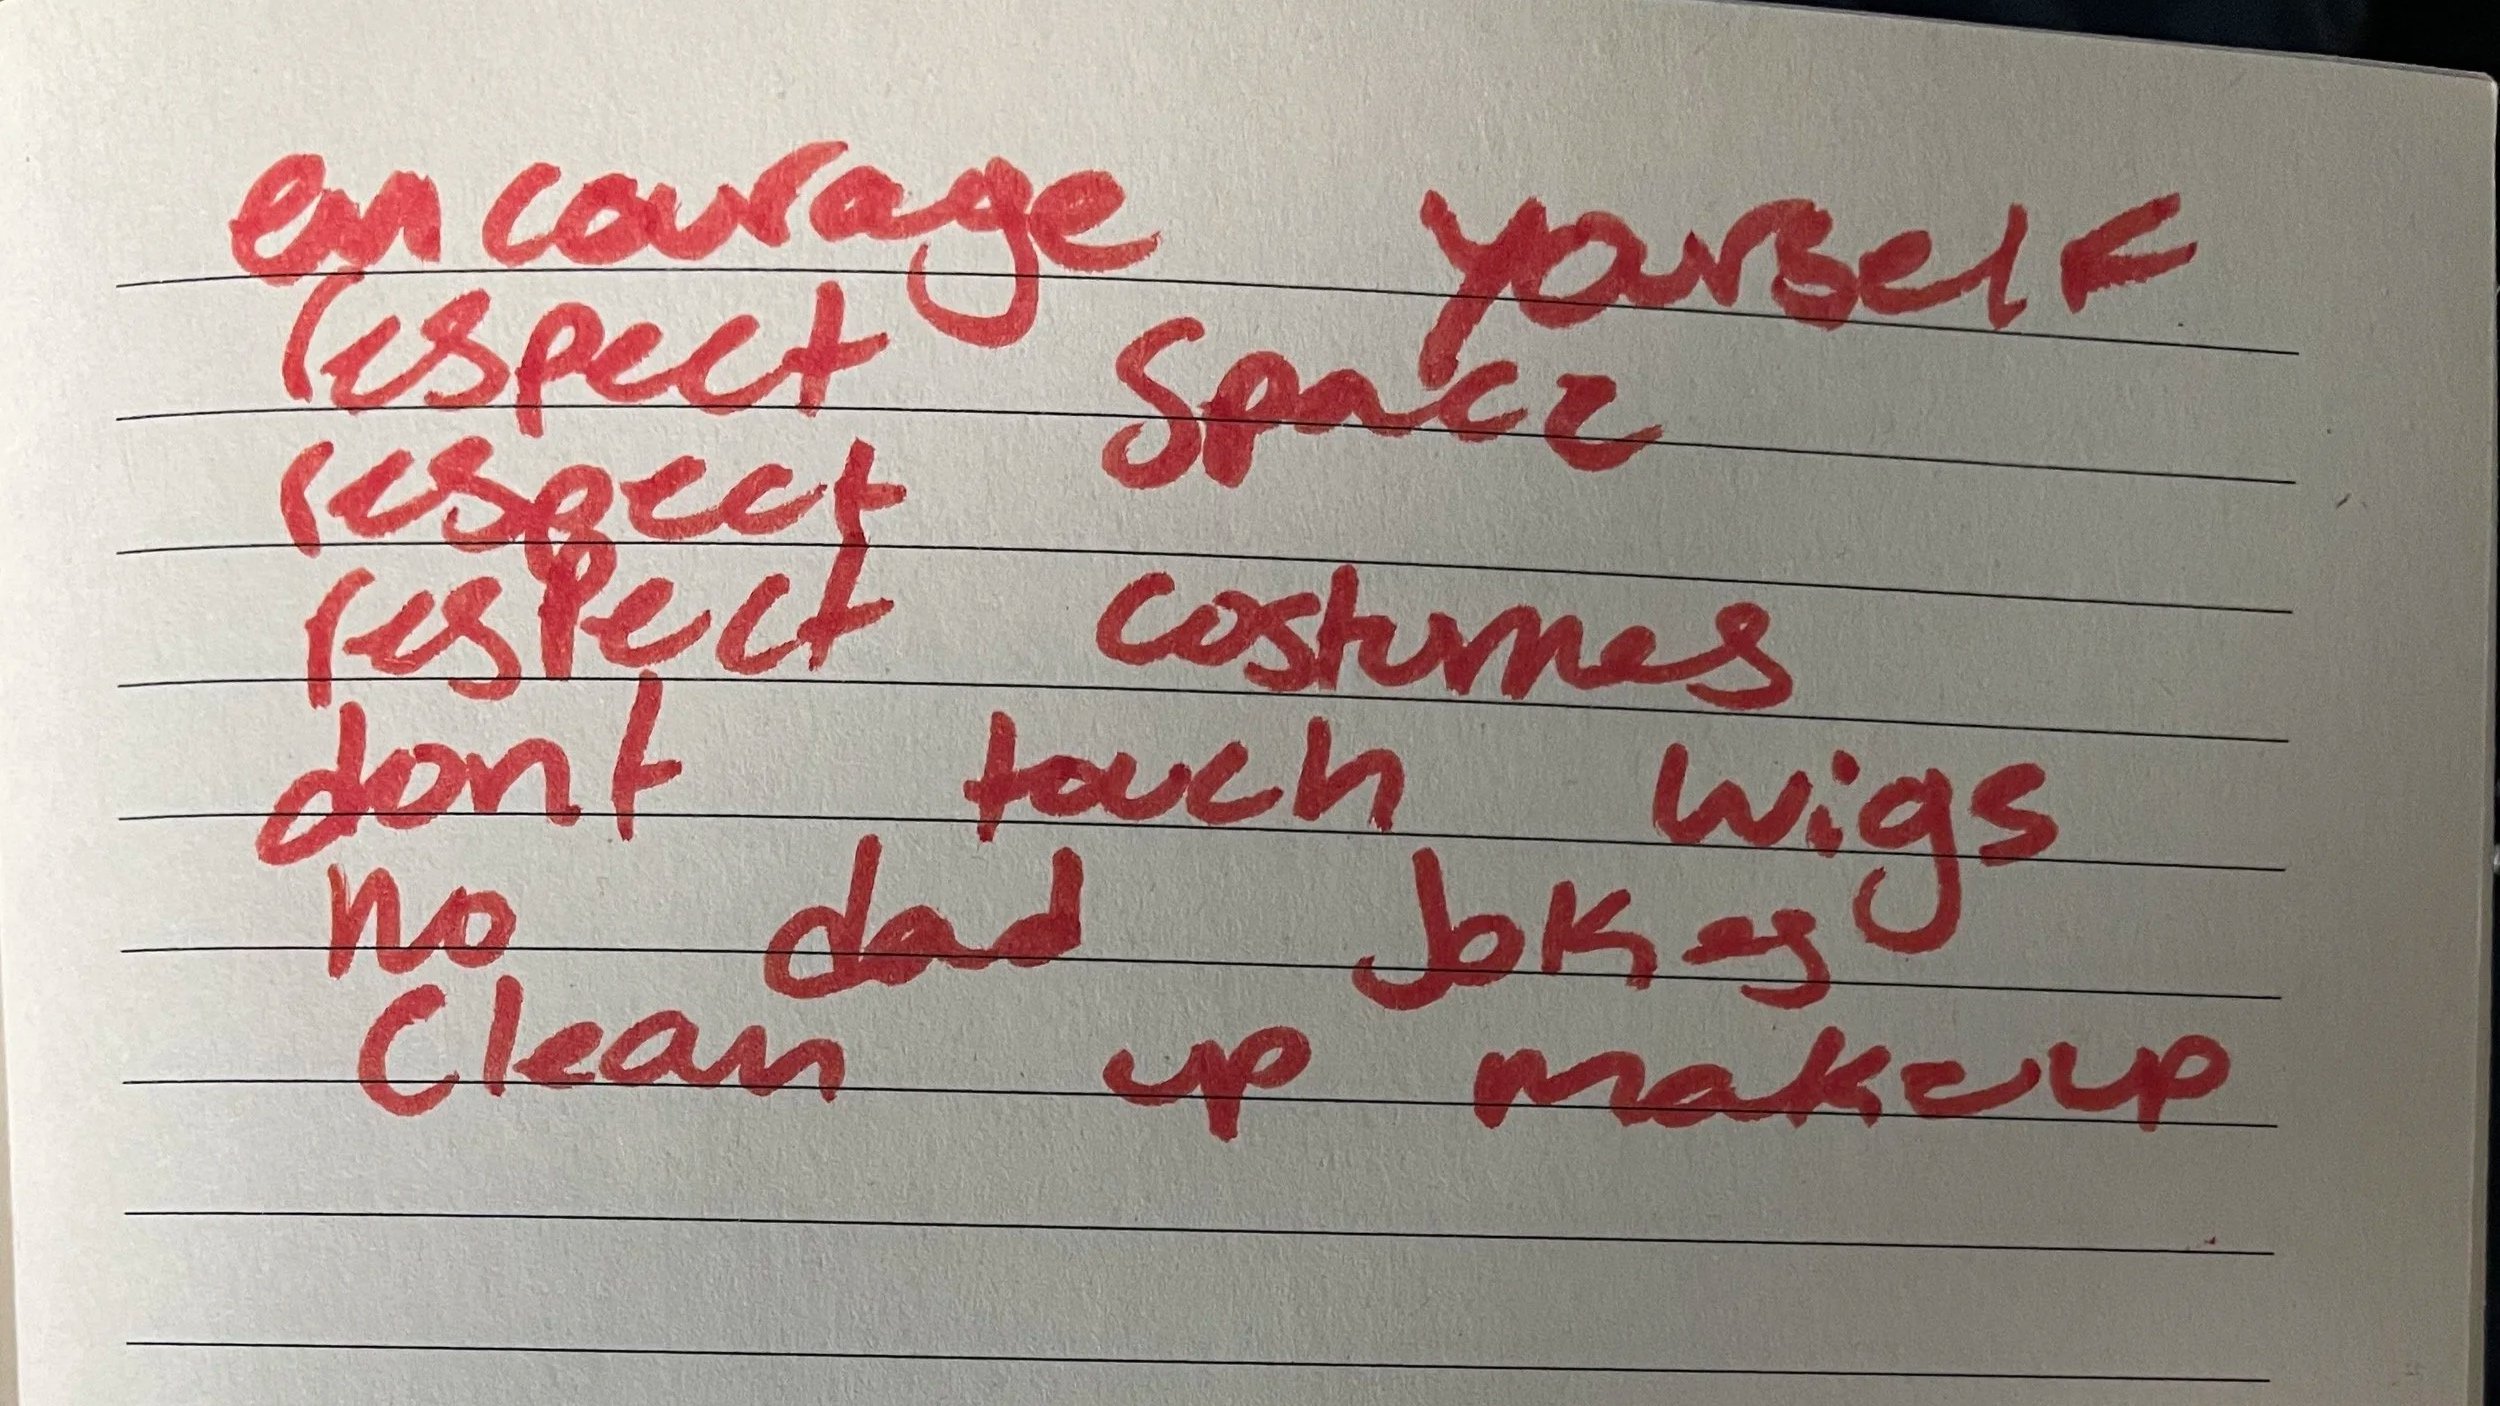 encourage yourself
respect space
respect
respect costumes
dont touch wigs
no dad jokes
Clean up makeup